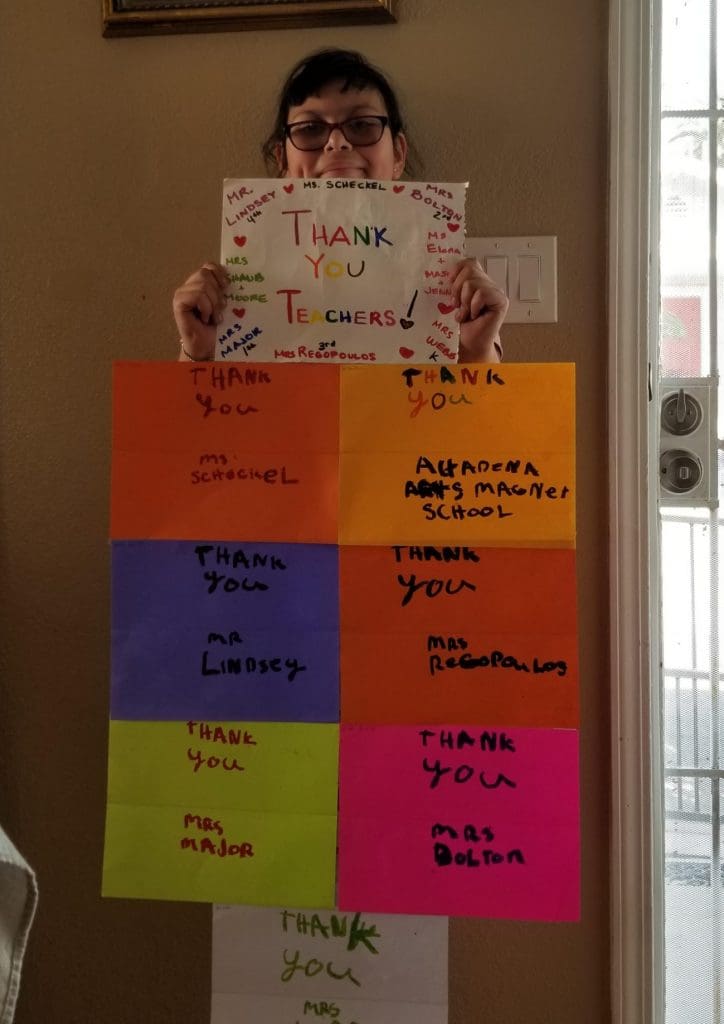 MR. LINDSEY 4th
MS. SCHECKEL
MRS BOLTON 2nd
THANK
YOU
TEACHERS!
MRS SHAUB + MOORE
MS ELORA +
MRS MAJOR 1st
MRS REGOPOULOS 3rd
MRS WEBB K
THANK
You
MS.
SCHECKEL
THANK
you
ALTADENA
ARTS MAGNET
SCHOOL
THANK
You
MR
LINDSEY
THANK
you
MRS
REGOPOULOS
THANK
you
MRS
MAJOR
THANK
you
MRS
BOLTON
THANK
you
MRS